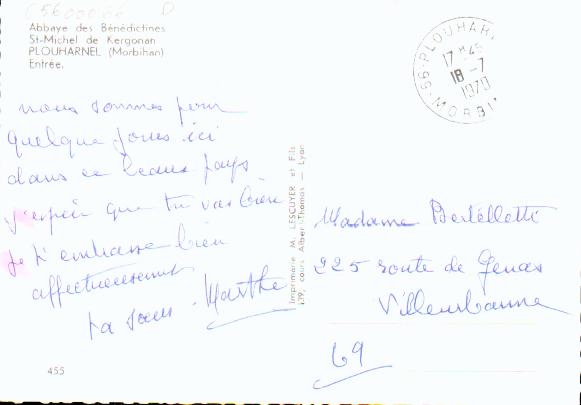 C5600066 D
Abbaye des Bénédictines
St-Michel de Kergonan
PLOUHARNEL (Morbihan)
Entrée.
56 - PLOUHAR
17 H 45
18 - 7
1970
MORBI
nous sommes pour
quelque jours ici
dans ce beaux pays
j'espère que tu vas bien
je t'embrasse bien
affectueusement
ta soeur. Marthe
455
Imprimerie M. LESCUYER et Fils
139, cours Albert-Thomas - Lyon
Madame Bertellotti
225 route de Genas
Villeurbanne
69